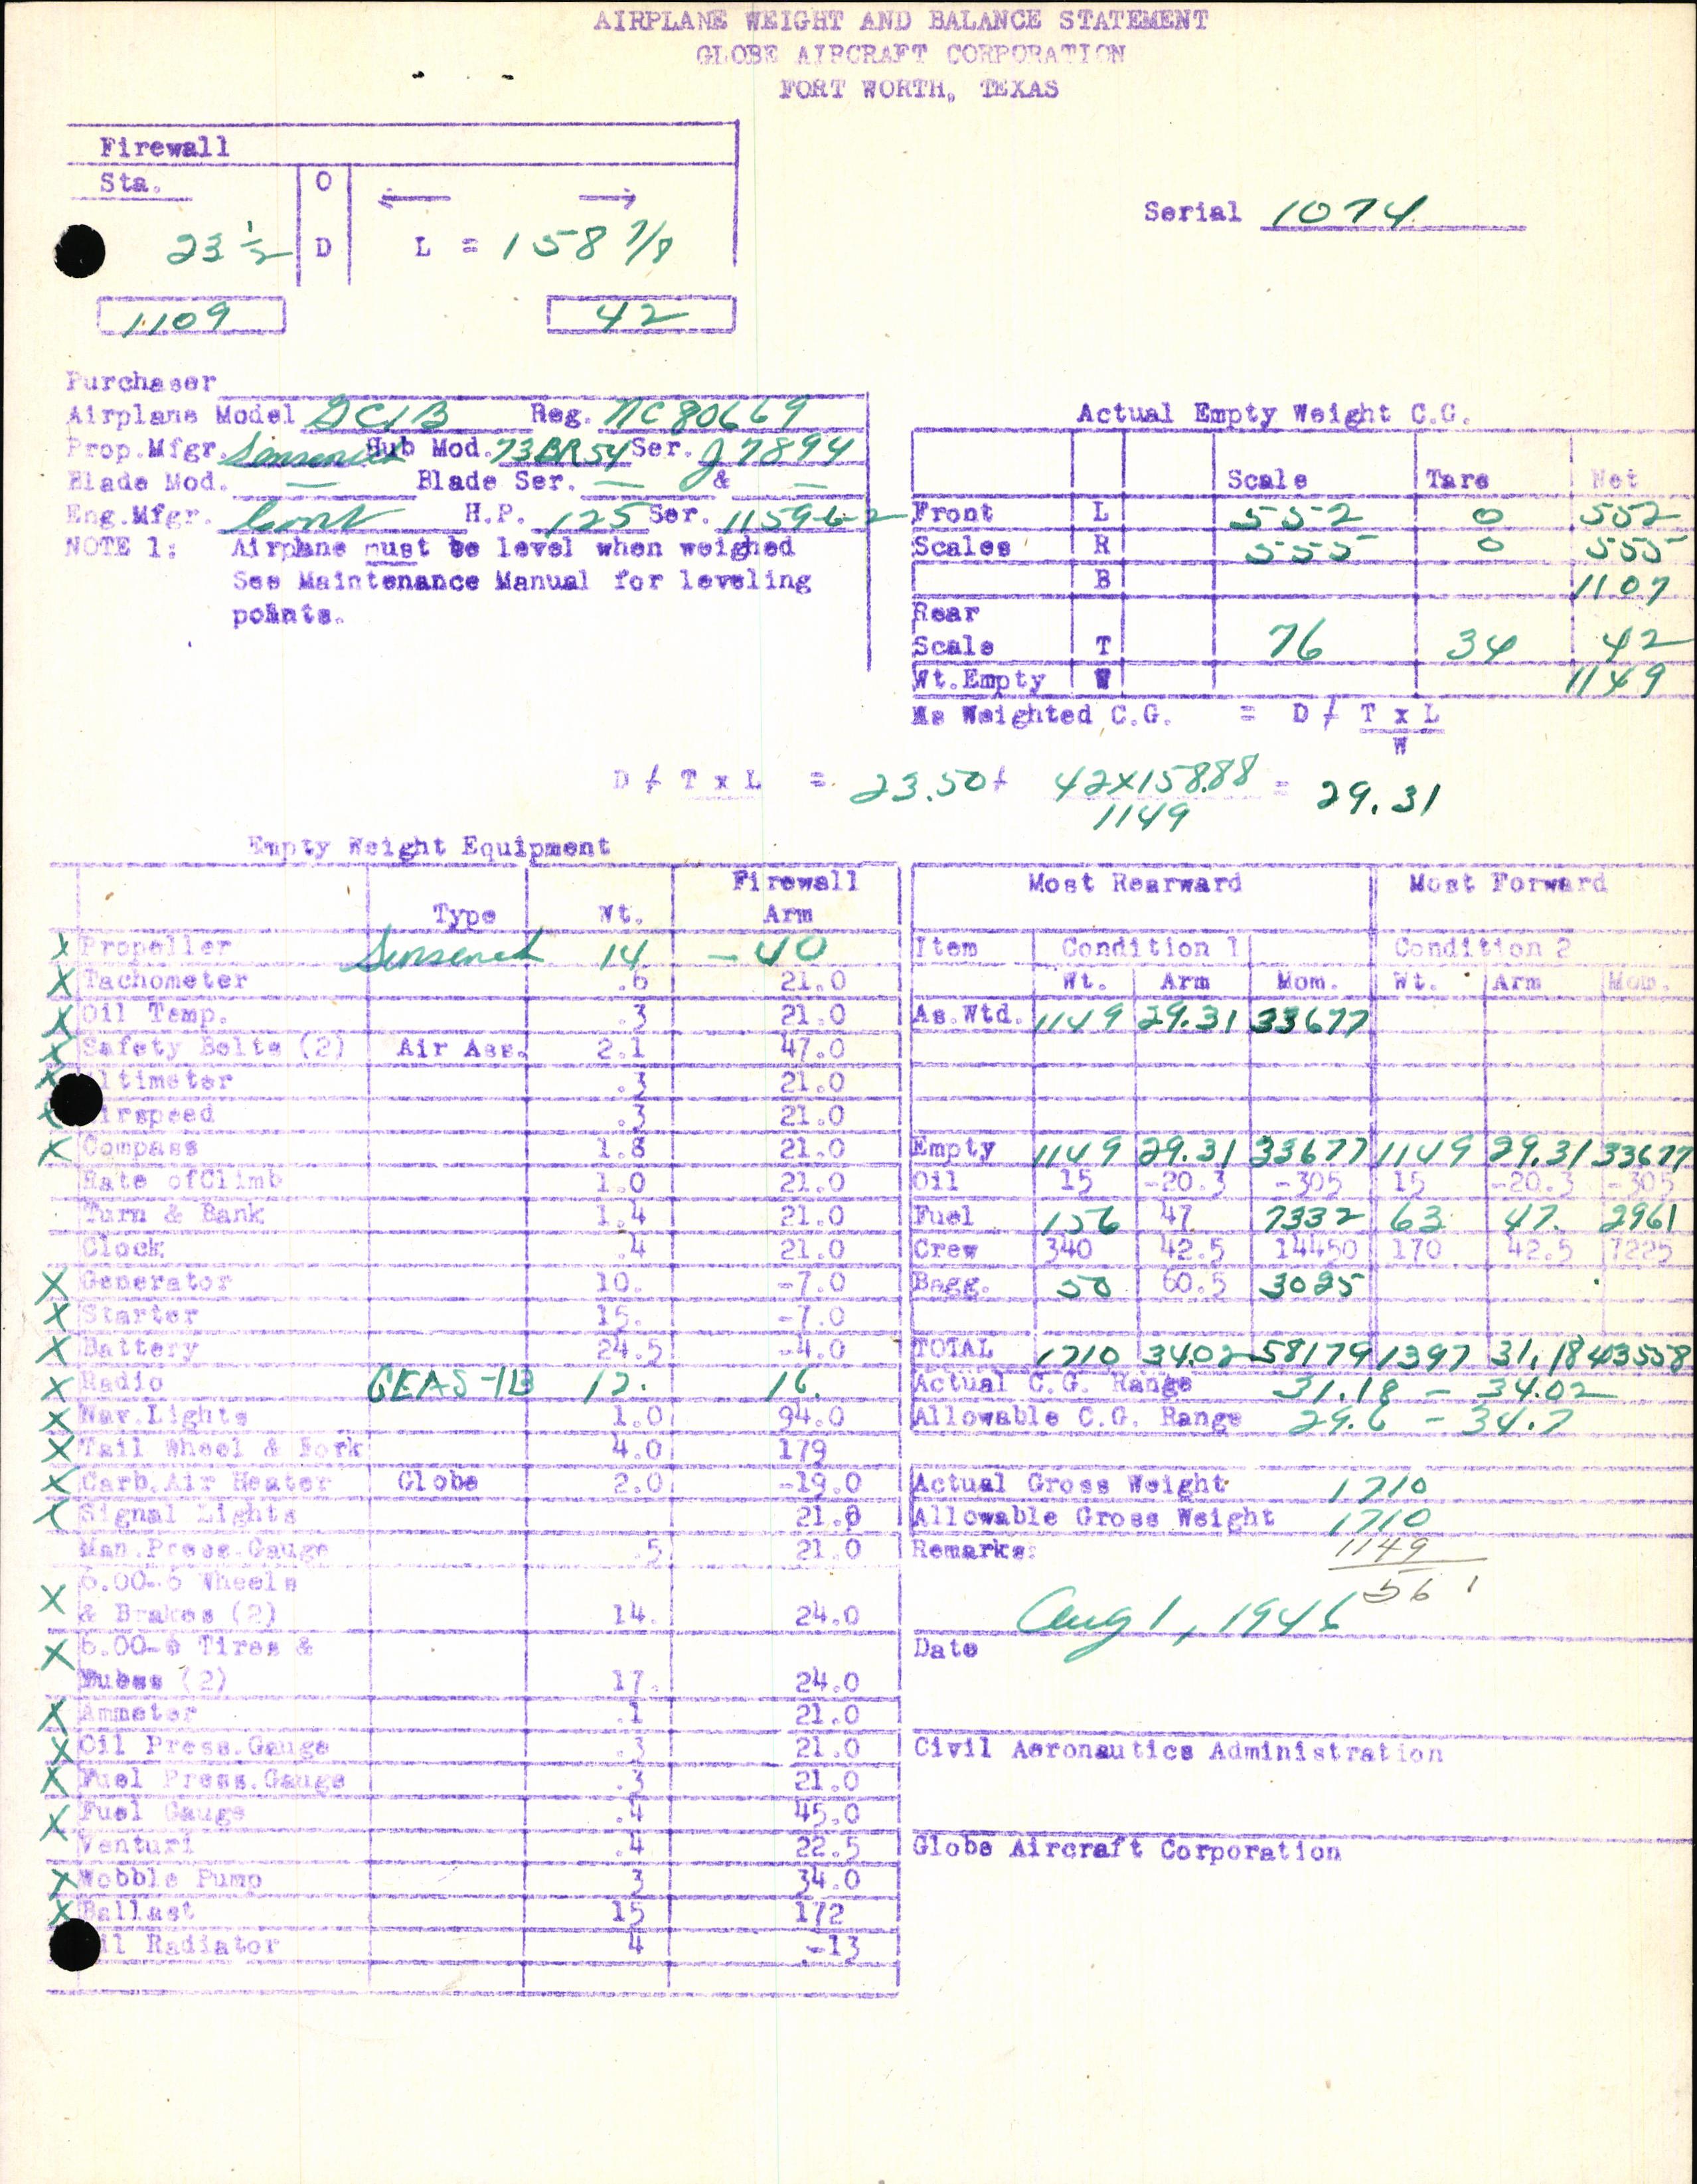 AIRPLANE WEIGHT AND BALANCE STATEMENT
GLOBE AIRCRAFT CORPORATION
FORT WORTH, TEXAS
Firewall
Sta. O ← →
23 1/2 D L = 158 7/8
Serial 1074
1109 42
Purchaser
Airplane Model GC1B Reg. NC80669
Prop.Mfgr. Sensenich Hub Mod. 73BR54 Ser. J7894
Blade Mod. — Blade Ser. — & —
Eng.Mfgr. Cont H.P. 125 Ser. 115962
NOTE 1: Airplane must be level when weighed
See Maintenance Manual for leveling
points.
Actual Empty Weight C.G.
Scale Tare Net
Front L 552 0 552
Scales R 555 0 555
B 1107
Rear
Scale T 76 34 42
Wt.Empty W 1149
As Weighted C.G. = D / T x L
W
D / T x L = 23.50 + 42x158.88 = 29.31
1149
Empty Weight Equipment
Type Wt. Firewall Arm
X Propeller Sensenich 14 -40
X Tachometer .6 21.0
X Oil Temp. .3 21.0
X Safety Belts (2) Air Ass. 2.1 47.0
X ltimeter .3 21.0
X irspeed .3 21.0
X Compass 1.8 21.0
Rate ofClimb 1.0 21.0
Turn & Bank 1.4 21.0
Clock .4 21.0
X Generator 10. -7.0
X Starter 15. -7.0
X Battery 24.5 -4.0
X Radio GEAS-1B 12. 16.
X Nav.Lights 1.0 94.0
X Tail Wheel & Fork 4.0 179
X Carb.Air Heater Globe 2.0 -19.0
X Signal Lights 21.0
Man.Press.Gauge .5 21.0
X 6.00-6 Wheels
& Brakes (2) 14. 24.0
X 6.00-6 Tires &
Tubes (2) 17. 24.0
X Ammeter .1 21.0
X Oil Press.Gauge .3 21.0
X Fuel Press.Gauge .3 21.0
X Fuel Gauge .4 45.0
Venturi .4 22.5
X Wobble Pump 3 34.0
X Ballast 15 172
il Radiator 4 -13
Most Rearward Most Forward
Item Condition 1 Condition 2
Wt. Arm Mom. Wt. Arm Mom.
As.Wtd. 1149 29.31 33677
Empty 1149 29.31 33677 1149 29.31 33677
Oil 15 -20.3 -305 15 -20.3 -305
Fuel 156 47 7332 63 47. 2961
Crew 340 42.5 14450 170 42.5 7225
Bagg. 50 60.5 3025
TOTAL 1710 34.02 58179 1397 31.18 43558
Actual C.G. Range 31.18 - 34.02
Allowable C.G. Range 29.6 - 34.7
Actual Gross Weight 1710
Allowable Gross Weight 1710
Remarks: 1149
561
Aug 1, 1946
Date
Civil Aeronautics Administration
Globe Aircraft Corporation